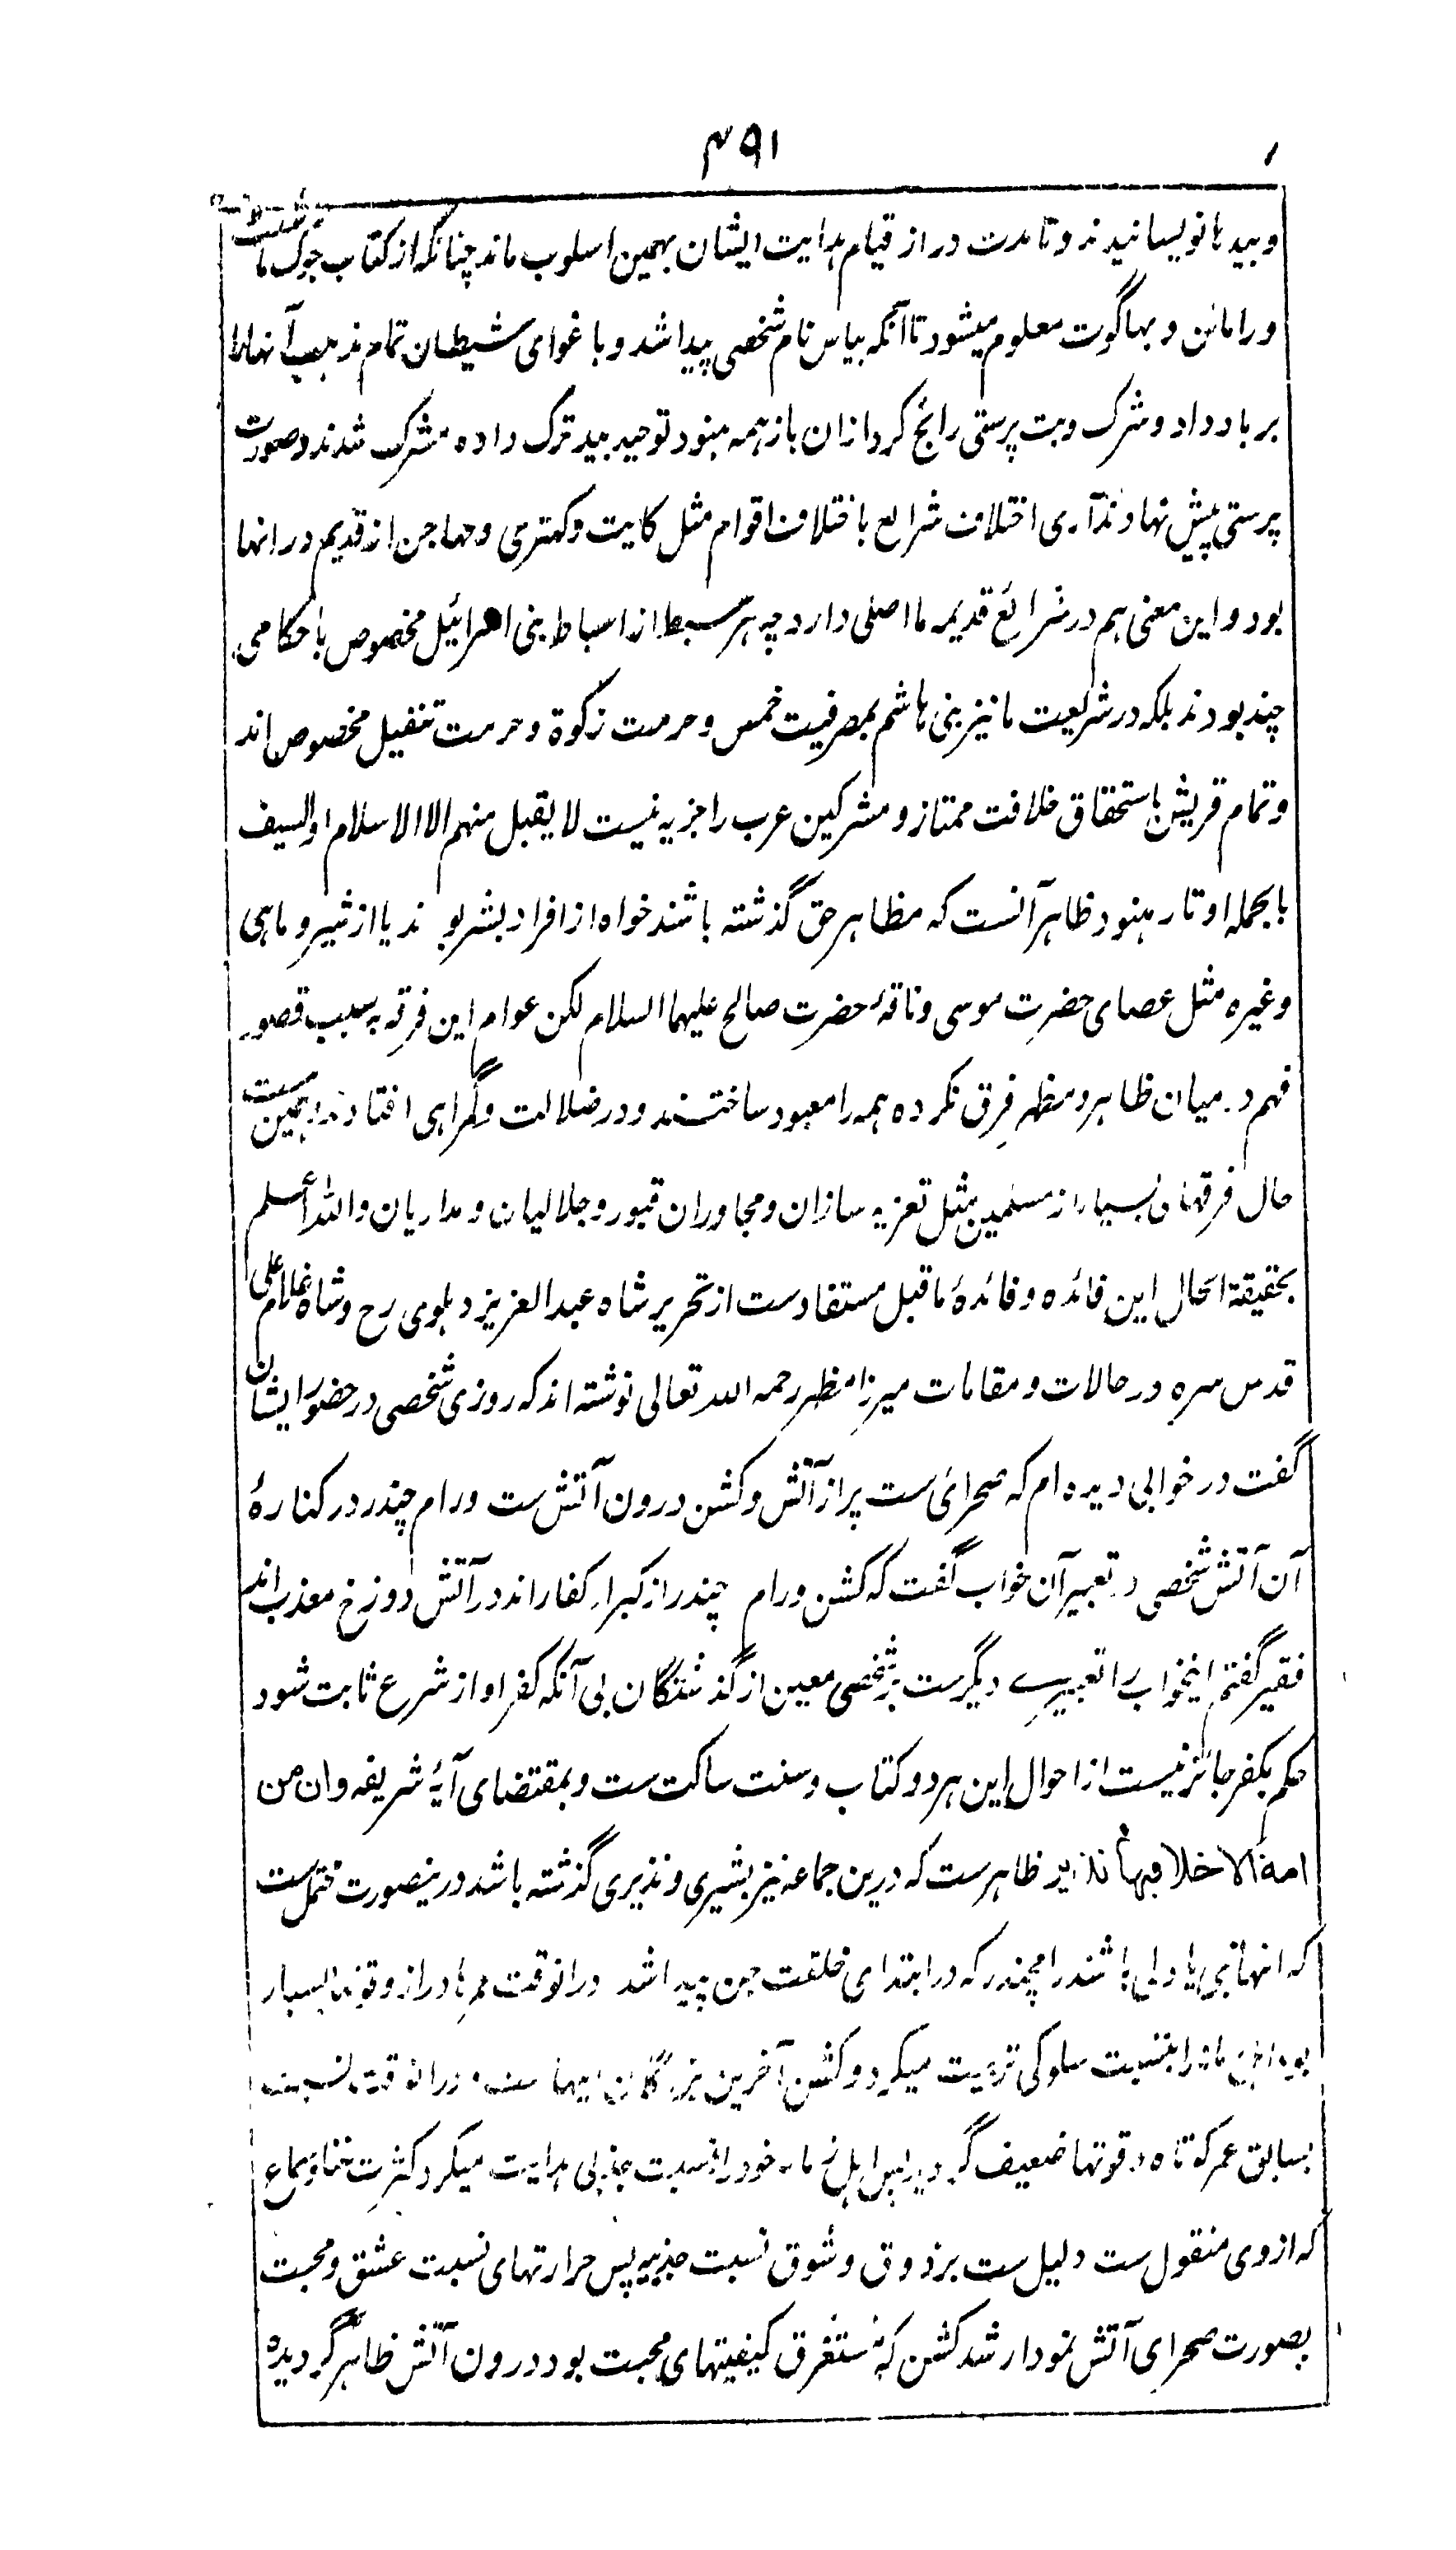 ۴۹۱
و بیدها نویسانیدند و تا مدت دراز قیام هدایت ایشان بهمین اسلوب ماند چنانکه از کتاب جوک باشست
و رامائن و بهاگوت معلوم میشود تا آنکه بیاس نام شخصی پیدا شد و باغوای شیطان تمام مذهب آنها را
برباد داد و شرک و بت پرستی رایج کرد ازان باز همه هنود توحید بید ترک داده مشرک شدند و صورت
پرستی پیش نهادند آری اختلاف شرایع باختلاف اقوام مثل کایت و کهتری و مهاجن از قدیم در انها
بود و این معنی هم در شرائع قدیمه ما اصلی دارد چه هر سبط از اسباط بنی اسرائیل مخصوص باحکامی
چند بودند بلکه در شریعت ما نیز بنی هاشم بمصرفیت خمس و حرمت زکوة و حرمت تنفیل مخصوص اند
و تمام قریش باستحقاق خلافت ممتاز و مشرکین عرب را جزیه نیست لا یقبل منهم الا الاسلام او السیف
بالجمله اوتار هنود ظاهر آنست که مظاهر حق گذشته باشند خواه از افراد بشر بوند یا از شیر و ماهی
و غیره مثل عصای حضرت موسی و ناقهٔ حضرت صالح علیهما السلام لکن عوام این فرقه بسبب قصور
فهم در میان ظاهر و مظهر فرق نکرده همه را معبود ساختند و در ضلالت و گمراهی افتادند و همین ست
حال فرقهای بسیار از مسلمین مثل تعزیه سازان و مجاوران قبور و جلالیان و مداریان والله اعلم
بحقیقة الحال این فائده و فائدهٔ ماقبل مستفادست از تحریر شاه عبد العزیز دهلوی رح و شاه غلام علی
قدس سره در حالات و مقامات میرزا مظهر رحمه الله تعالی نوشته اند که روزی شخصی در حضور ایشان
گفت در خوابی دیده ام که صحرائ ست پر از آتش و کشن درون آتش ست و رام چندر در کنارهٔ
آن آتش شخصی در تعبیر آن خواب گفت که کشن و رام چندر از کبراء کفار اند در آتش دوزخ معذب اند
فقیر گفتم اینخواب را تعبیرے دیگرست بر شخصی معین از گذشتگان بی آنکه کفر او از شرع ثابت شود
حکم بکفر جائز نیست از احوال این هر دو کتاب و سنت ساکت ست و بمقتضای آیهٔ شریفه وان من
امة الا خلا فیها نذیر ظاهرست که درین جماعه نیز بشیری و نذیری گذشته باشد درینصورت محتمل ست
که انها نبی یا ولی باشند رامچندر که در ابتدای خلقت جن پیدا شد درانوقت عمرها دراز و قوتها بسیار
بود اهل زمانه را بنسبت سلوکی تربیت میکرد و کشن آخرین بزرگان اینها ست درانوقت نسبت
بسابق عمر کوتاه و قوتها ضعیف گردید پس اهل زمانه خود را بنسبت جذبی هدایت میکرد کثرت غنا و سماع
که از وی منقول ست دلیل ست بر ذوق و شوق نسبت جذبیه پس حرارتهای نسبت عشق و محبت
بصورت صحرای آتش نمودار شد کشن که مستغرق کیفیتهای محبت بود درون آتش ظاهر گردیده